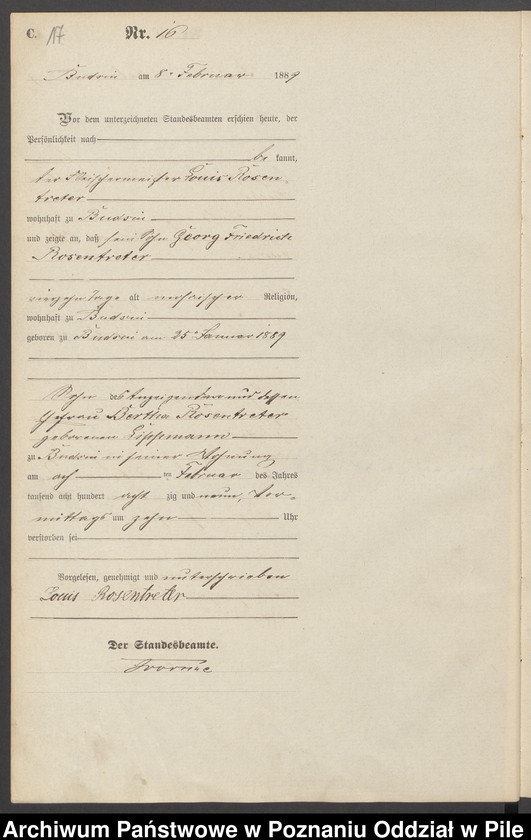 C. 17 Nr. 16
Budsin am 8. Februar 1889
Vor dem unterzeichneten Standesbeamten erschien heute, der
Persönlichkeit nach
be kannt,
der Fleischermeister Louis Rosen-
treter
wohnhaft zu Budsin
und zeigte an, daß sein Sohn Georg Friedrich
Rosentreter
vierzehn Tage alt mosaischer Religion,
wohnhaft zu Budsin
geboren zu Budsin am 25. Januar 1889
Sohn des Anzeigenden und dessen
Ehefrau Bertha Rosentreter
geborenen Lippmann
zu Budsin in seiner Wohnung
am acht ten Februar des Jahres
tausend acht hundert acht zig und neun, Vor-
mittags um zehn Uhr
verstorben sei
Vorgelesen, genehmigt und unterschrieben
Louis Rosentreter
Der Standesbeamte.
Archiwum Państwowe w Poznaniu Oddział w Pile